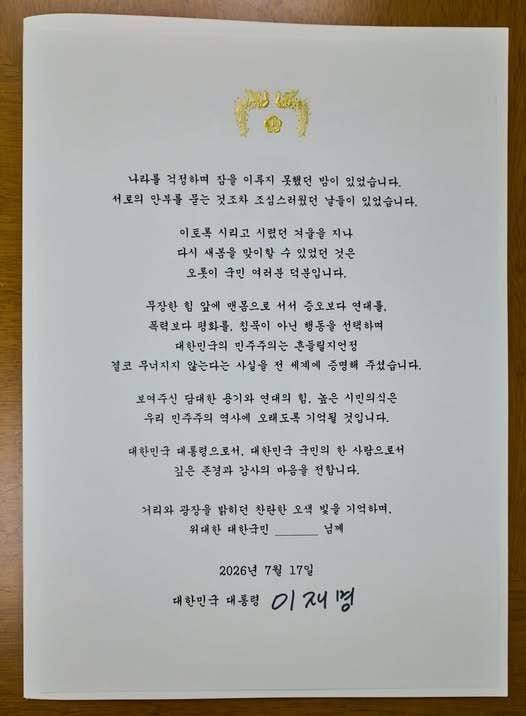 나라를 걱정하며 잠을 이루지 못했던 밤이 있었습니다.
서로의 안부를 묻는 것조차 조심스러웠던 날들이 있었습니다.
이토록 시리고 시렸던 겨울을 지나
다시 새봄을 맞이할 수 있었던 것은
오롯이 국민 여러분 덕분입니다.
무장한 힘 앞에 맨몸으로 서서 증오보다 연대를,
폭력보다 평화를, 침묵이 아닌 행동을 선택하며
대한민국의 민주주의는 흔들릴지언정
결코 무너지지 않는다는 사실을 전 세계에 증명해 주셨습니다.
보여주신 담대한 용기와 연대의 힘, 높은 시민의식은
우리 민주주의 역사에 오래도록 기억될 것입니다.
대한민국 대통령으로서, 대한민국 국민의 한 사람으로서
깊은 존경과 감사의 마음을 전합니다.
거리와 광장을 밝히던 찬란한 오색 빛을 기억하며,
위대한 대한국민 ______ 님께
2026년 7월 17일
대한민국 대통령 이재명